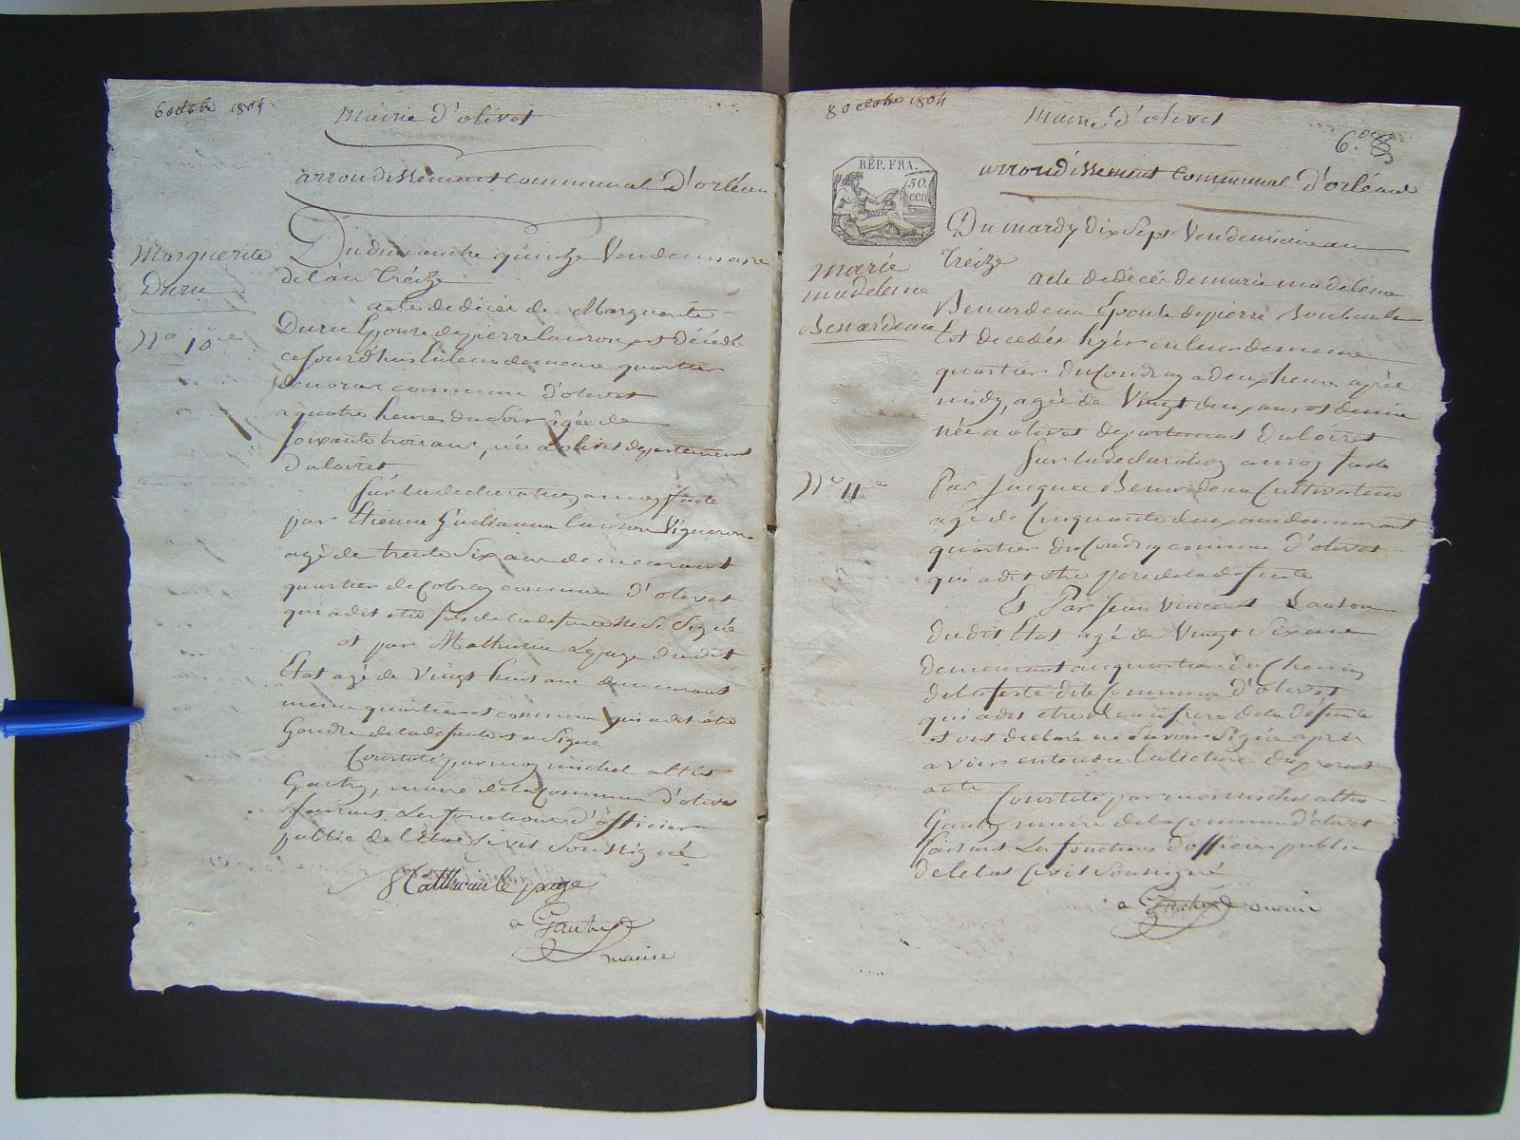 6 octobre 1804
Mairie d'olivet
arrondissement communal D'orléans
Marguerite
Durie
N° 10e
Du dimanche quinze Vendemiaire
de l'an treize
acte de décés de Marguerite
Durie Epouse de pierre est décédé
ce jourd'hui demeure quartier
commune d'olivet
a quatre heures du Soir agée de
soixante trois ans, née a olivet departement
du loiret
Sur la declaration a moy faitte
par Etienne Guillaume Vigneron
agé de trente Six ans demeurant
quartier de commune d'olivet
qui a dit etre fils de la defunte
et par Mathurin Lepage dudit
Etat agé de Vingt huit ans demeurant
meme quartier et commune qui a dit être
Gendre de la defunte et a Signé
Constaté par moy michel
maire de la Commune d'olivet
faisant Les fonctions d'officier
public de l'état Civil Soussigné
Mathurin le page
maire
8 octobre 1804
Mairie d'olivet
6.
arrondissement Communal d'orléans
RÉP. FRA.
50.
cen
marie
madeleine
Besnardeau
N° 11e
Du mardy dix Sept Vendemiaire an
treize
acte de décés de marie madeleine
Benardeau Epouse de pierre
Est decedée hyer en leur demeure
quartier du Coudray a deux heures après
midy, agée de Vingt deux ans et demie
née a olivet departement du loiret
Sur la declaration a moy faite
Par Jacque Benardeau Cultivateur
agé de Cinquante deux ans demeurant
quartier du Coudray commune d'olivet
qui a dit etre pere de la defunte
Et Par Jean Vincent
dudit Etat agé de Vingt Six ans
demeurant au quartier du Chemin
de la ferté dite Commune d'olivet
qui a dit etre frere de la defunte
et ont declaré ne Savoir Signer après
avoir entendu la lecture du present
acte
Constaté par moi michel
maire de la Commune d'olivet
faisant Les fonctions d'officier public
de l'etat Civil Soussigné
maire